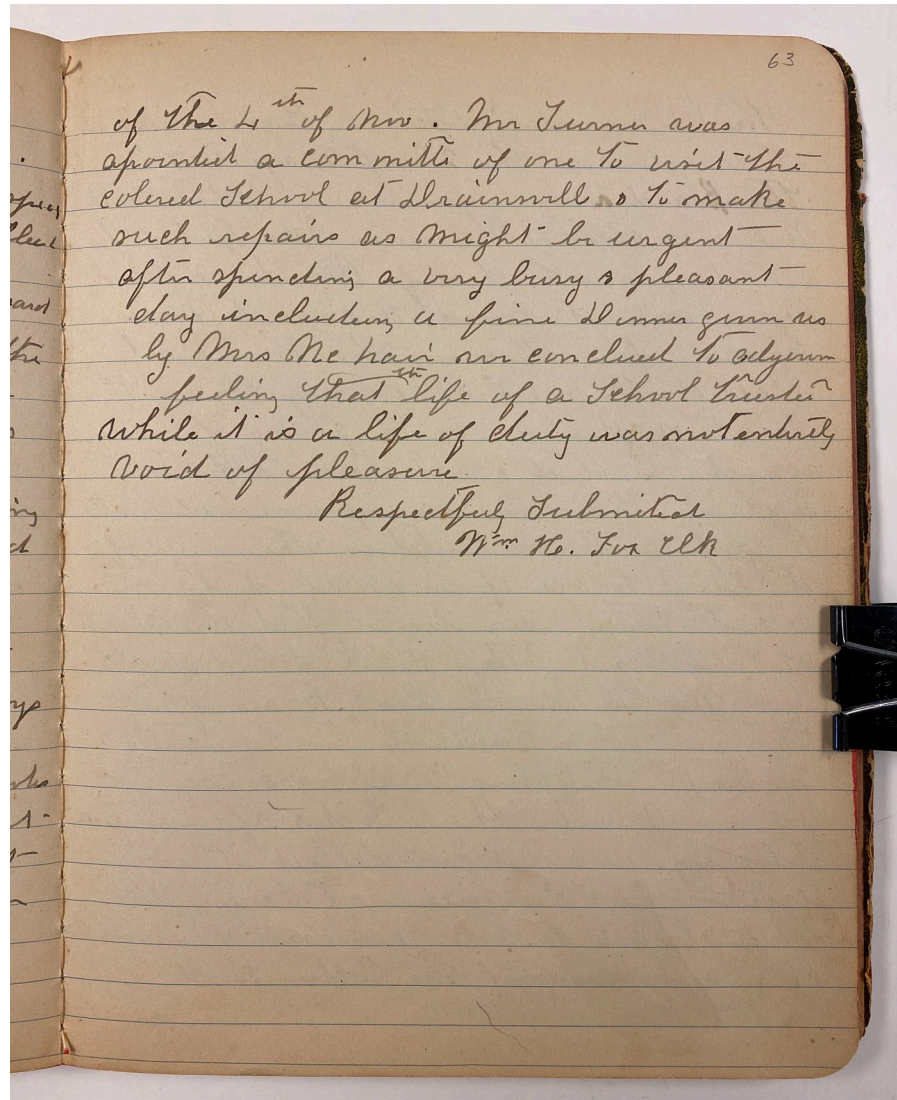 63
of the 4th of Nov. Mr Turner was
apointed a committe of one to visit the
colered School at Drainsvill & to make
such repairs as might be urgent
after spending a very busy & pleasant
day including a fine Dinner given us
by Mrs McNair we conclued to adyourn
feeling that the life of a School trustee
while it is a life of duty was not entirely
void of pleasure.
Respectfuly Submited
Wm H. Fox Clk